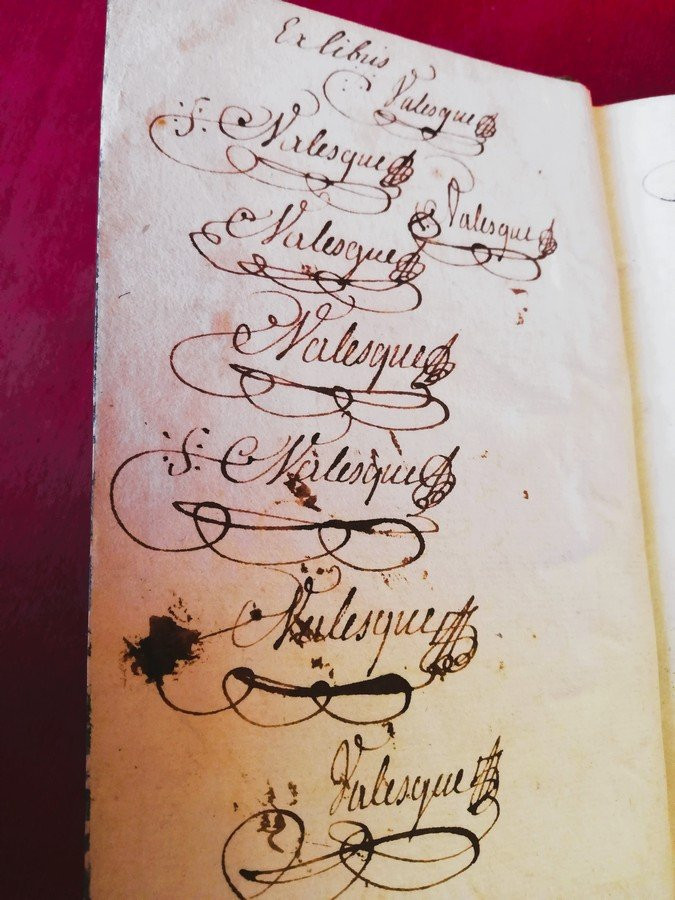 Ex libris
Valesque
.S. Valesque
Valesque
Valesque
Valesque
.S. Valesque
Valesque
Valesque